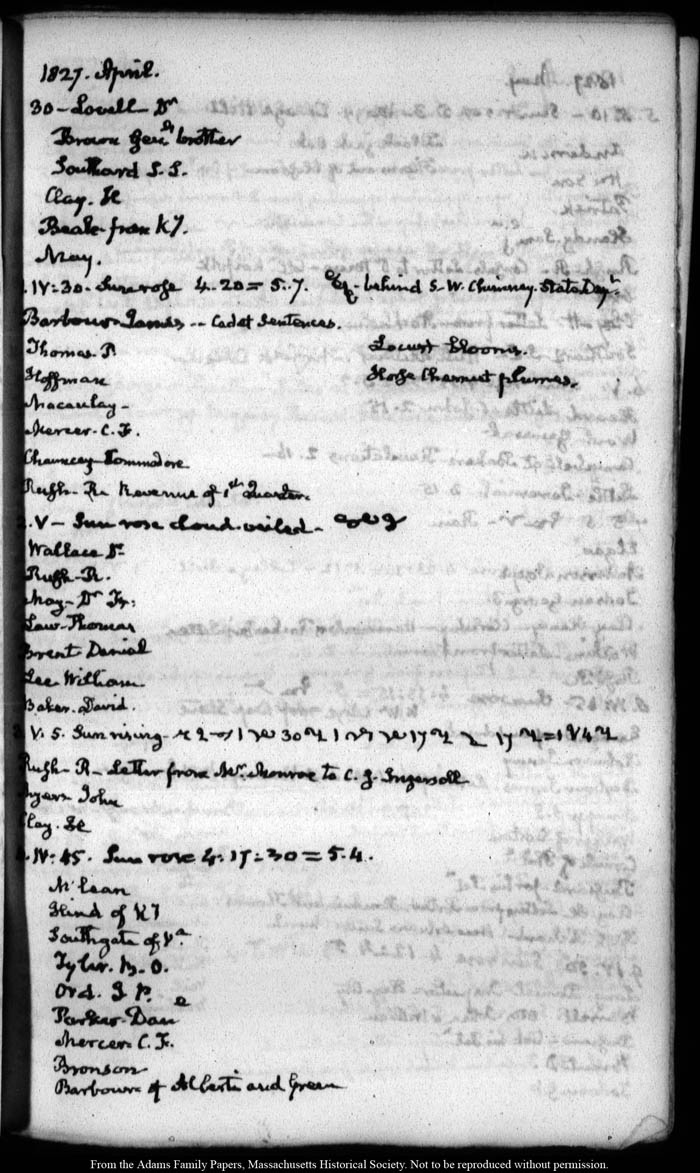 1827. April.
30 - Lovell Dr
Brown Genls brother
Southard S. L.
Clay. H
Beale from KY.
May.
1. IV: 30. Sun rose 4. 20 = 5. 7. behind S. W. Chimney. State Dept
Barbour James -- Cadet sentences.
Thomas P Locust blooms.
Hoffman Horse Chesnut plumes.
Macaulay -
Mercer. C. F.
Chauncey Commodore
Rush. R. Revenue of 1st Quarter
2. V - Sun rose cloud-veiled -
Wallace Dr
Rush. R.
May - Dr Fr:
Law. Thomas
Brent Daniel
Lee William
Baker. David.
3. V: 5. Sun rising
Rush - R - Letter from Mr. Monroe to C. J. Ingersoll
Myers John
Clay. H
4. IV: 45. Sun rose 4: 17: 30 = 5. 4.
McLean
Hind of KY
Southgate of Va.
Tyler. B. O.
Ord. J P.
Parker Dan
Mercer C. F.
Bronson
Barbour and Green
From the Adams Family Papers, Massachusetts Historical Society. Not to be reproduced without permission.